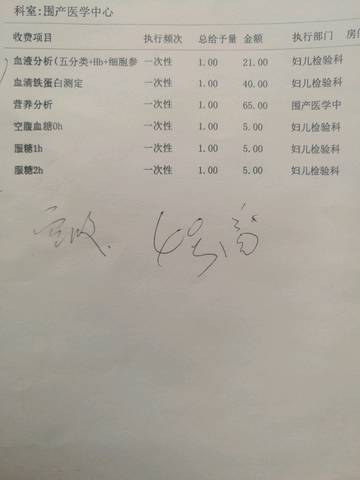 科室:围产医学中心
收费项目 执行频次 总给予量 金额 执行部门 房
血液分析(五分类+Hb+细胞参 一次性 1.00 21.00 妇儿检验科
血清铁蛋白测定 一次性 1.00 40.00 妇儿检验科
营养分析 一次性 1.00 65.00 围产医学中
空腹血糖0h 一次性 1.00 5.00 妇儿检验科
服糖1h 一次性 1.00 5.00 妇儿检验科
服糖2h 一次性 1.00 5.00 妇儿检验科